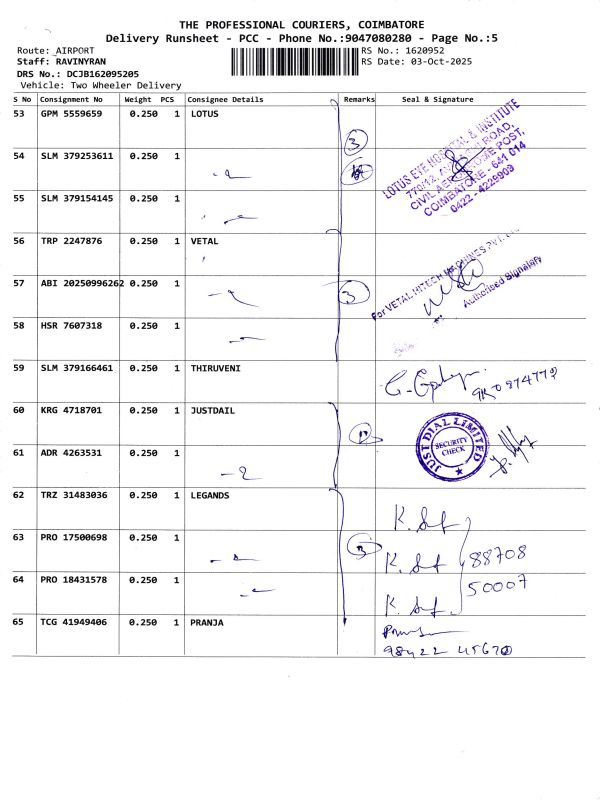 THE PROFESSIONAL COURIERS, COIMBATORE
Delivery Runsheet - PCC - Phone No.:9047080280 - Page No.:5
Route: AIRPORT
RS No.: 1620952
Staff: RAVINYRAN
RS Date: 03-Oct-2025
DRS No.: DCJB162095205
Vehicle: Two Wheeler Delivery
S No Consignment No Weight PCS Consignee Details Remarks Seal & Signature
53 GPM 5559659 0.250 1 LOTUS
3
LOTUS EYE HOSPITAL & INSTITUTE
770/12, AVINASHI ROAD,
CIVIL AERODROME POST,
COIMBATORE - 641 014
0422 - 4229909
54 SLM 379253611 0.250 1
55 SLM 379154145 0.250 1
56 TRP 2247876 0.250 1 VETAL
For VETAL HITECH MACHINES PVT. LTD
Authorised Signatory
57 ABI 20250996262 0.250 1
3
58 HSR 7607318 0.250 1
59 SLM 379166461 0.250 1 THIRUVENI
60 KRG 4718701 0.250 1 JUSTDAIL
JUST DIAL LIMITED
SECURITY
CHECK
61 ADR 4263531 0.250 1
62 TRZ 31483036 0.250 1 LEGANDS
63 PRO 17500698 0.250 1
88708
64 PRO 18431578 0.250 1
50007
65 TCG 41949406 0.250 1 PRANJA